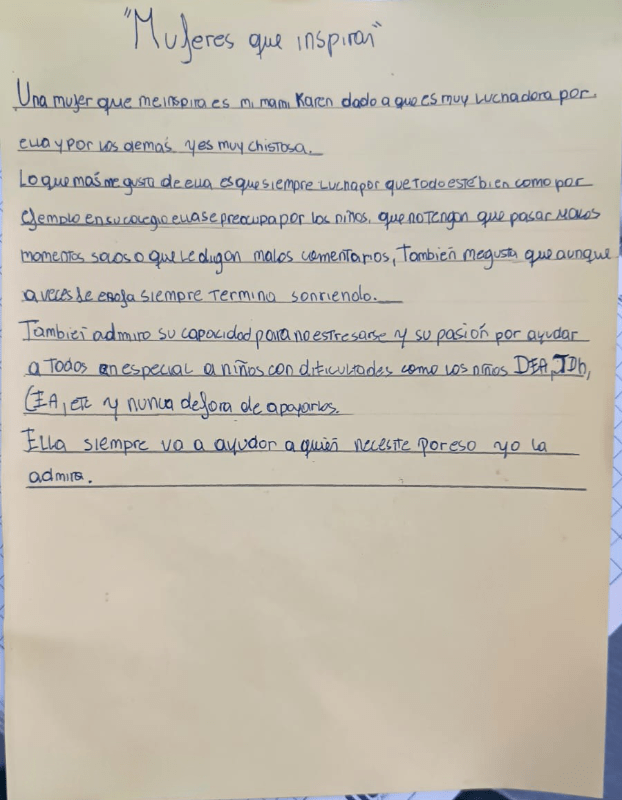 "Mujeres que inspiran"
Una mujer que me inspira es mi mami Karen dado a que es muy luchadora por
ella y por los demás y es muy chistosa.
Lo que más me gusta de ella es que siempre lucha por que todo esté bien como por
ejemplo en su colegio ella se preocupa por los niños, que no tengan que pasar malos
momentos solos o que le digan malos comentarios, También me gusta que aunque
a veces se enoja siempre termina sonriendo.
También admiro su capacidad para no estresarse y su pasión por ayudar
a Todos en especial a niños con dificultades como los niños DEA, TDh,
CEA, etc y nunca dejara de apoyarlos.
Ella siempre va a ayudar a quién necesite por eso yo la
admira.